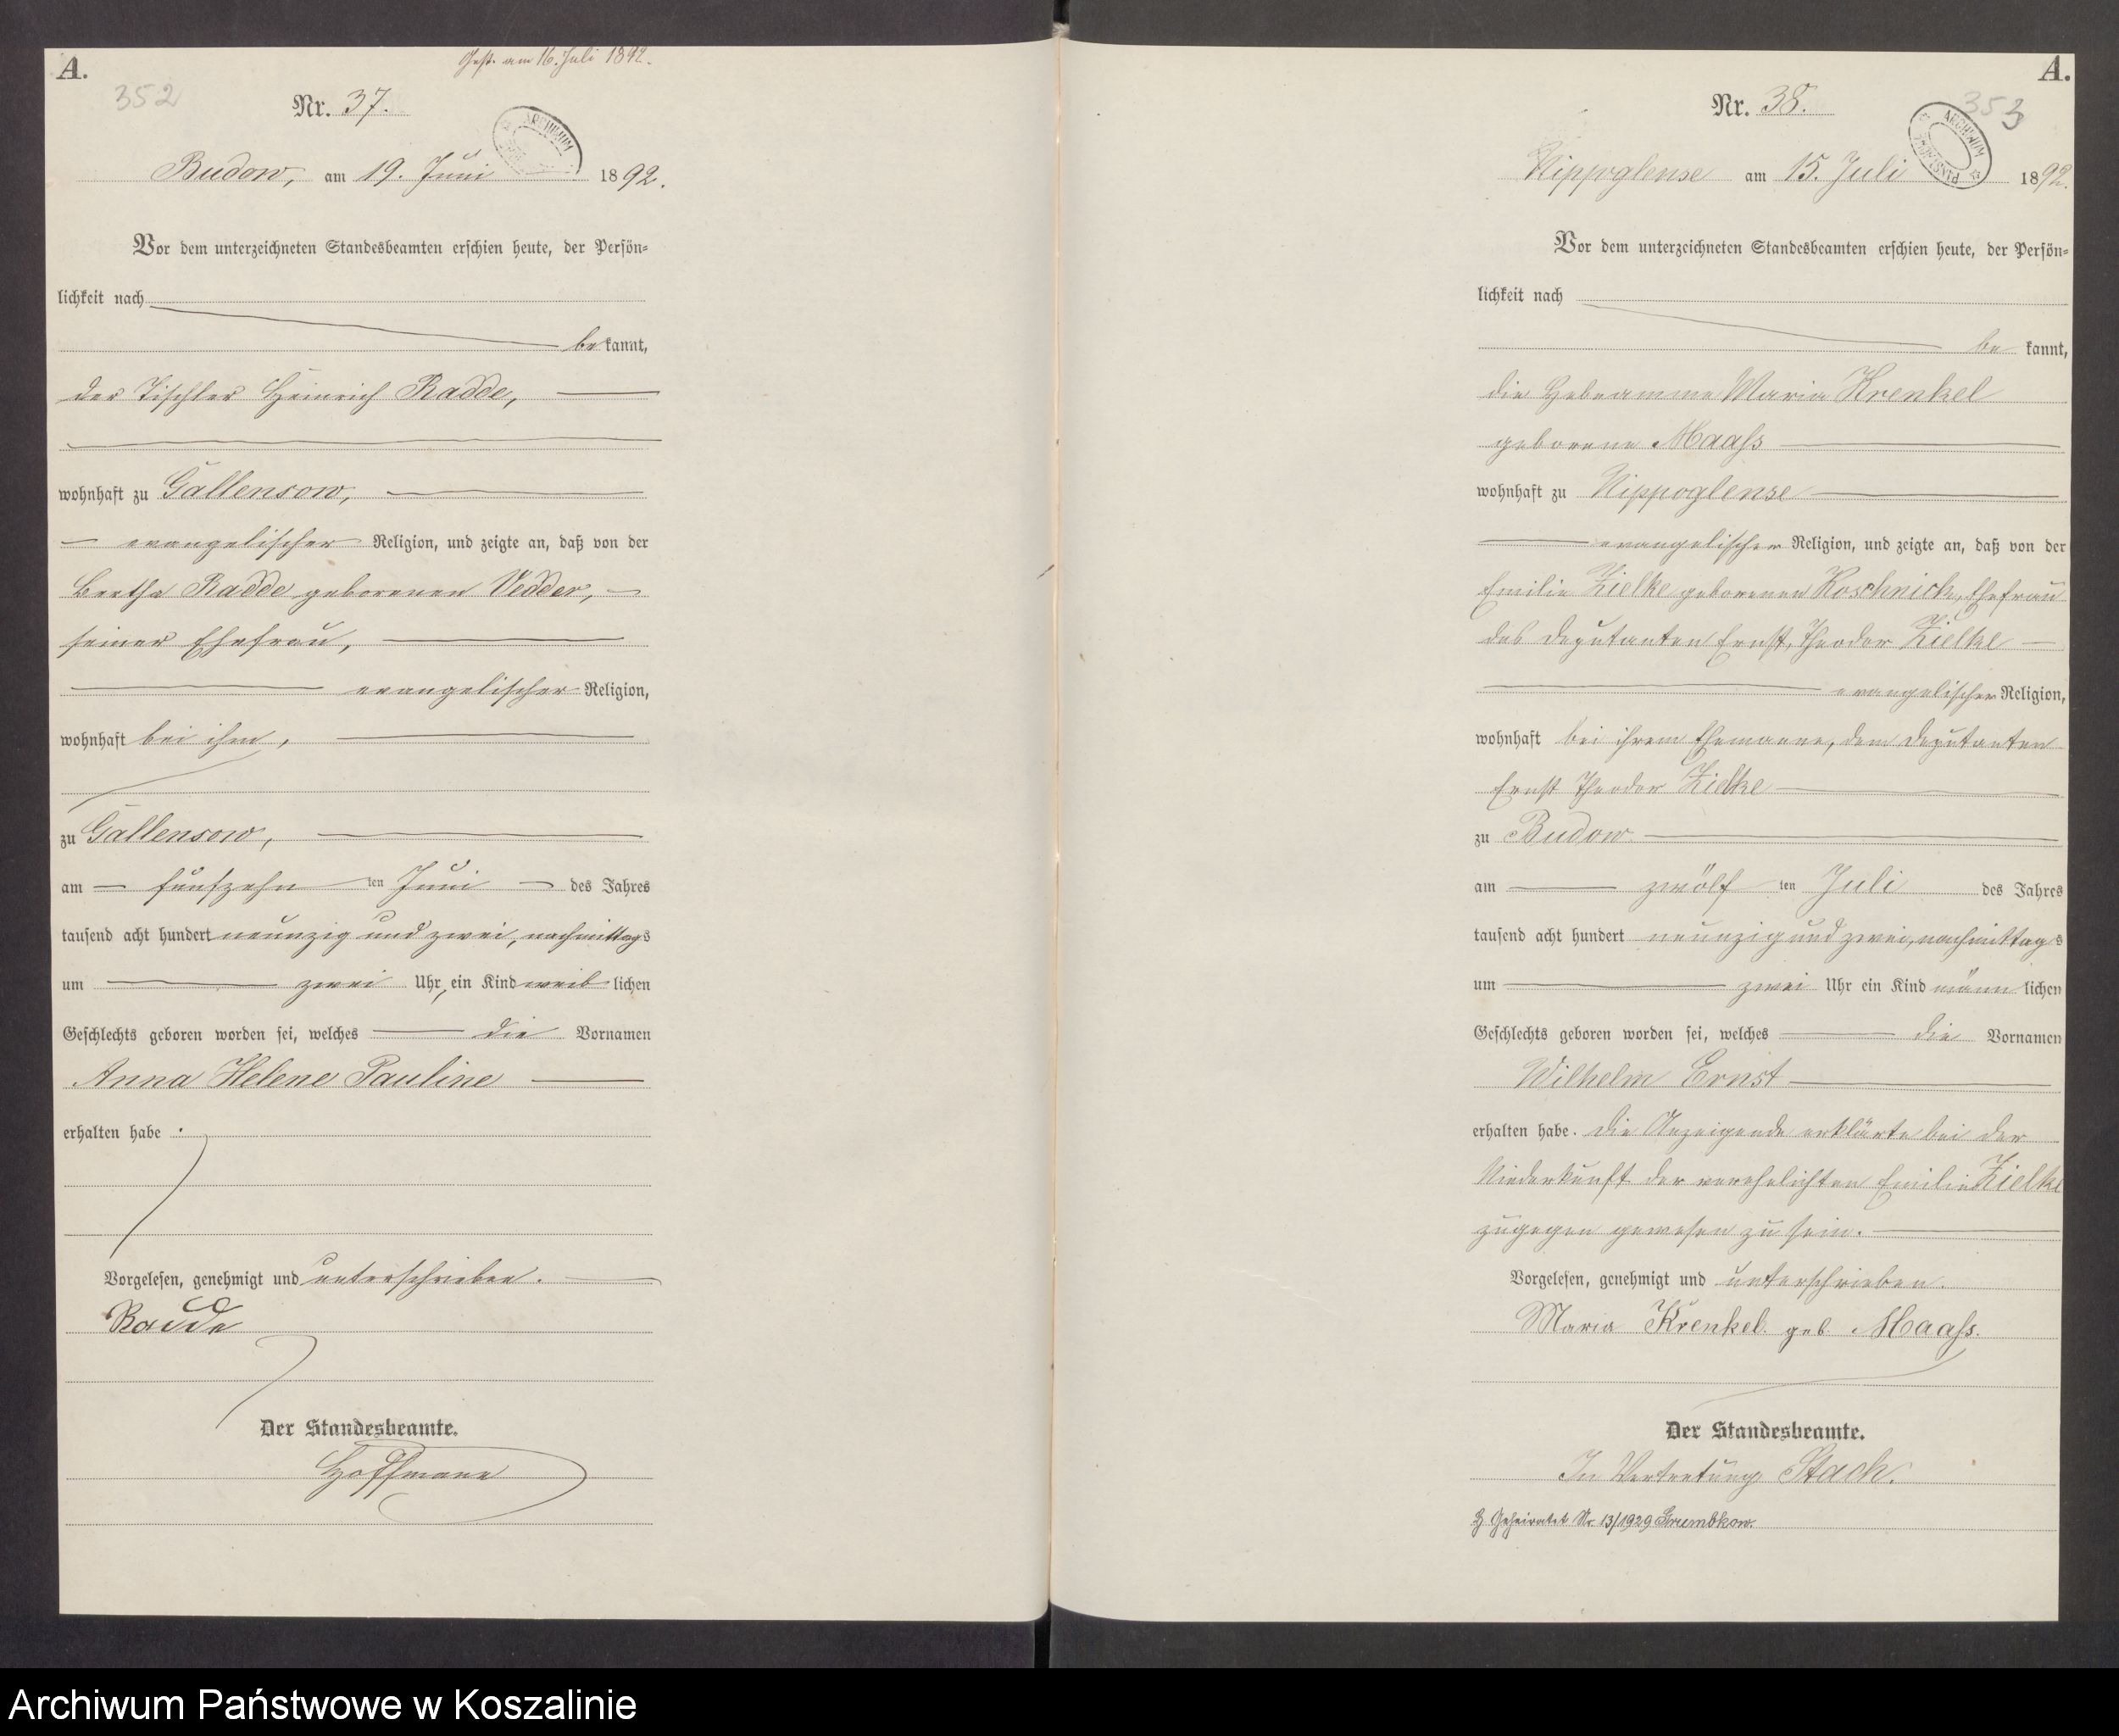 A.
352
Gest. am 16. Juli 1892.
Nr. 37.
ARCHIWUM
Budow, am 19. Juni 1892.
Vor dem unterzeichneten Standesbeamten erschien heute, der Persön-
lichkeit nach
bekannt,
der Tischler Heinrich Radde,
wohnhaft zu Gallensow,
evangelischer Religion, und zeigte an, daß von der
Bertha Radde geborenen Vedder,
seiner Ehefrau,
evangelischer Religion,
wohnhaft bei ihm,
zu Gallensow,
am fünfzehn ten Juni des Jahres
tausend acht hundert neunzig und zwei, nachmittags
um zwei Uhr, ein Kind weiblichen
Geschlechts geboren worden sei, welches die Vornamen
Anna Helene Pauline
erhalten habe.
Vorgelesen, genehmigt und unterschrieben.
Radde
Der Standesbeamte.
Hoffmann
A.
353
Nr. 38.
ARCHIWUM PAŃSTWOWE
Nippoglense am 15. Juli 1892.
Vor dem unterzeichneten Standesbeamten erschien heute, der Persön-
lichkeit nach
bekannt,
die Hebeamme Maria Krenkel
geborene Maaß
wohnhaft zu Nippoglense
evangelischer Religion, und zeigte an, daß von der
Emilie Zielke geborenen Roschnick, Ehefrau
des Deputanten Ernst, Theodor Zielke
evangelischer Religion,
wohnhaft bei ihrem Ehemanne, dem Deputanten
Ernst Theodor Zielke
zu Budow
am zwölf ten Juli des Jahres
tausend acht hundert neunzig und zwei, nachmittags
um zwei Uhr ein Kind männlichen
Geschlechts geboren worden sei, welches die Vornamen
Wilhelm Ernst
erhalten habe. Die Anzeigende erklärte bei der
Niederkunft der verehelichten Emilie Zielke
zugegen gewesen zu sein.
Vorgelesen, genehmigt und unterschrieben.
Maria Krenkel geb. Maaß.
Der Standesbeamte.
In Vertretung Stach.
Geheiratet Nr. 13/1929 Grumbkow.
Archiwum Państwowe w Koszalinie